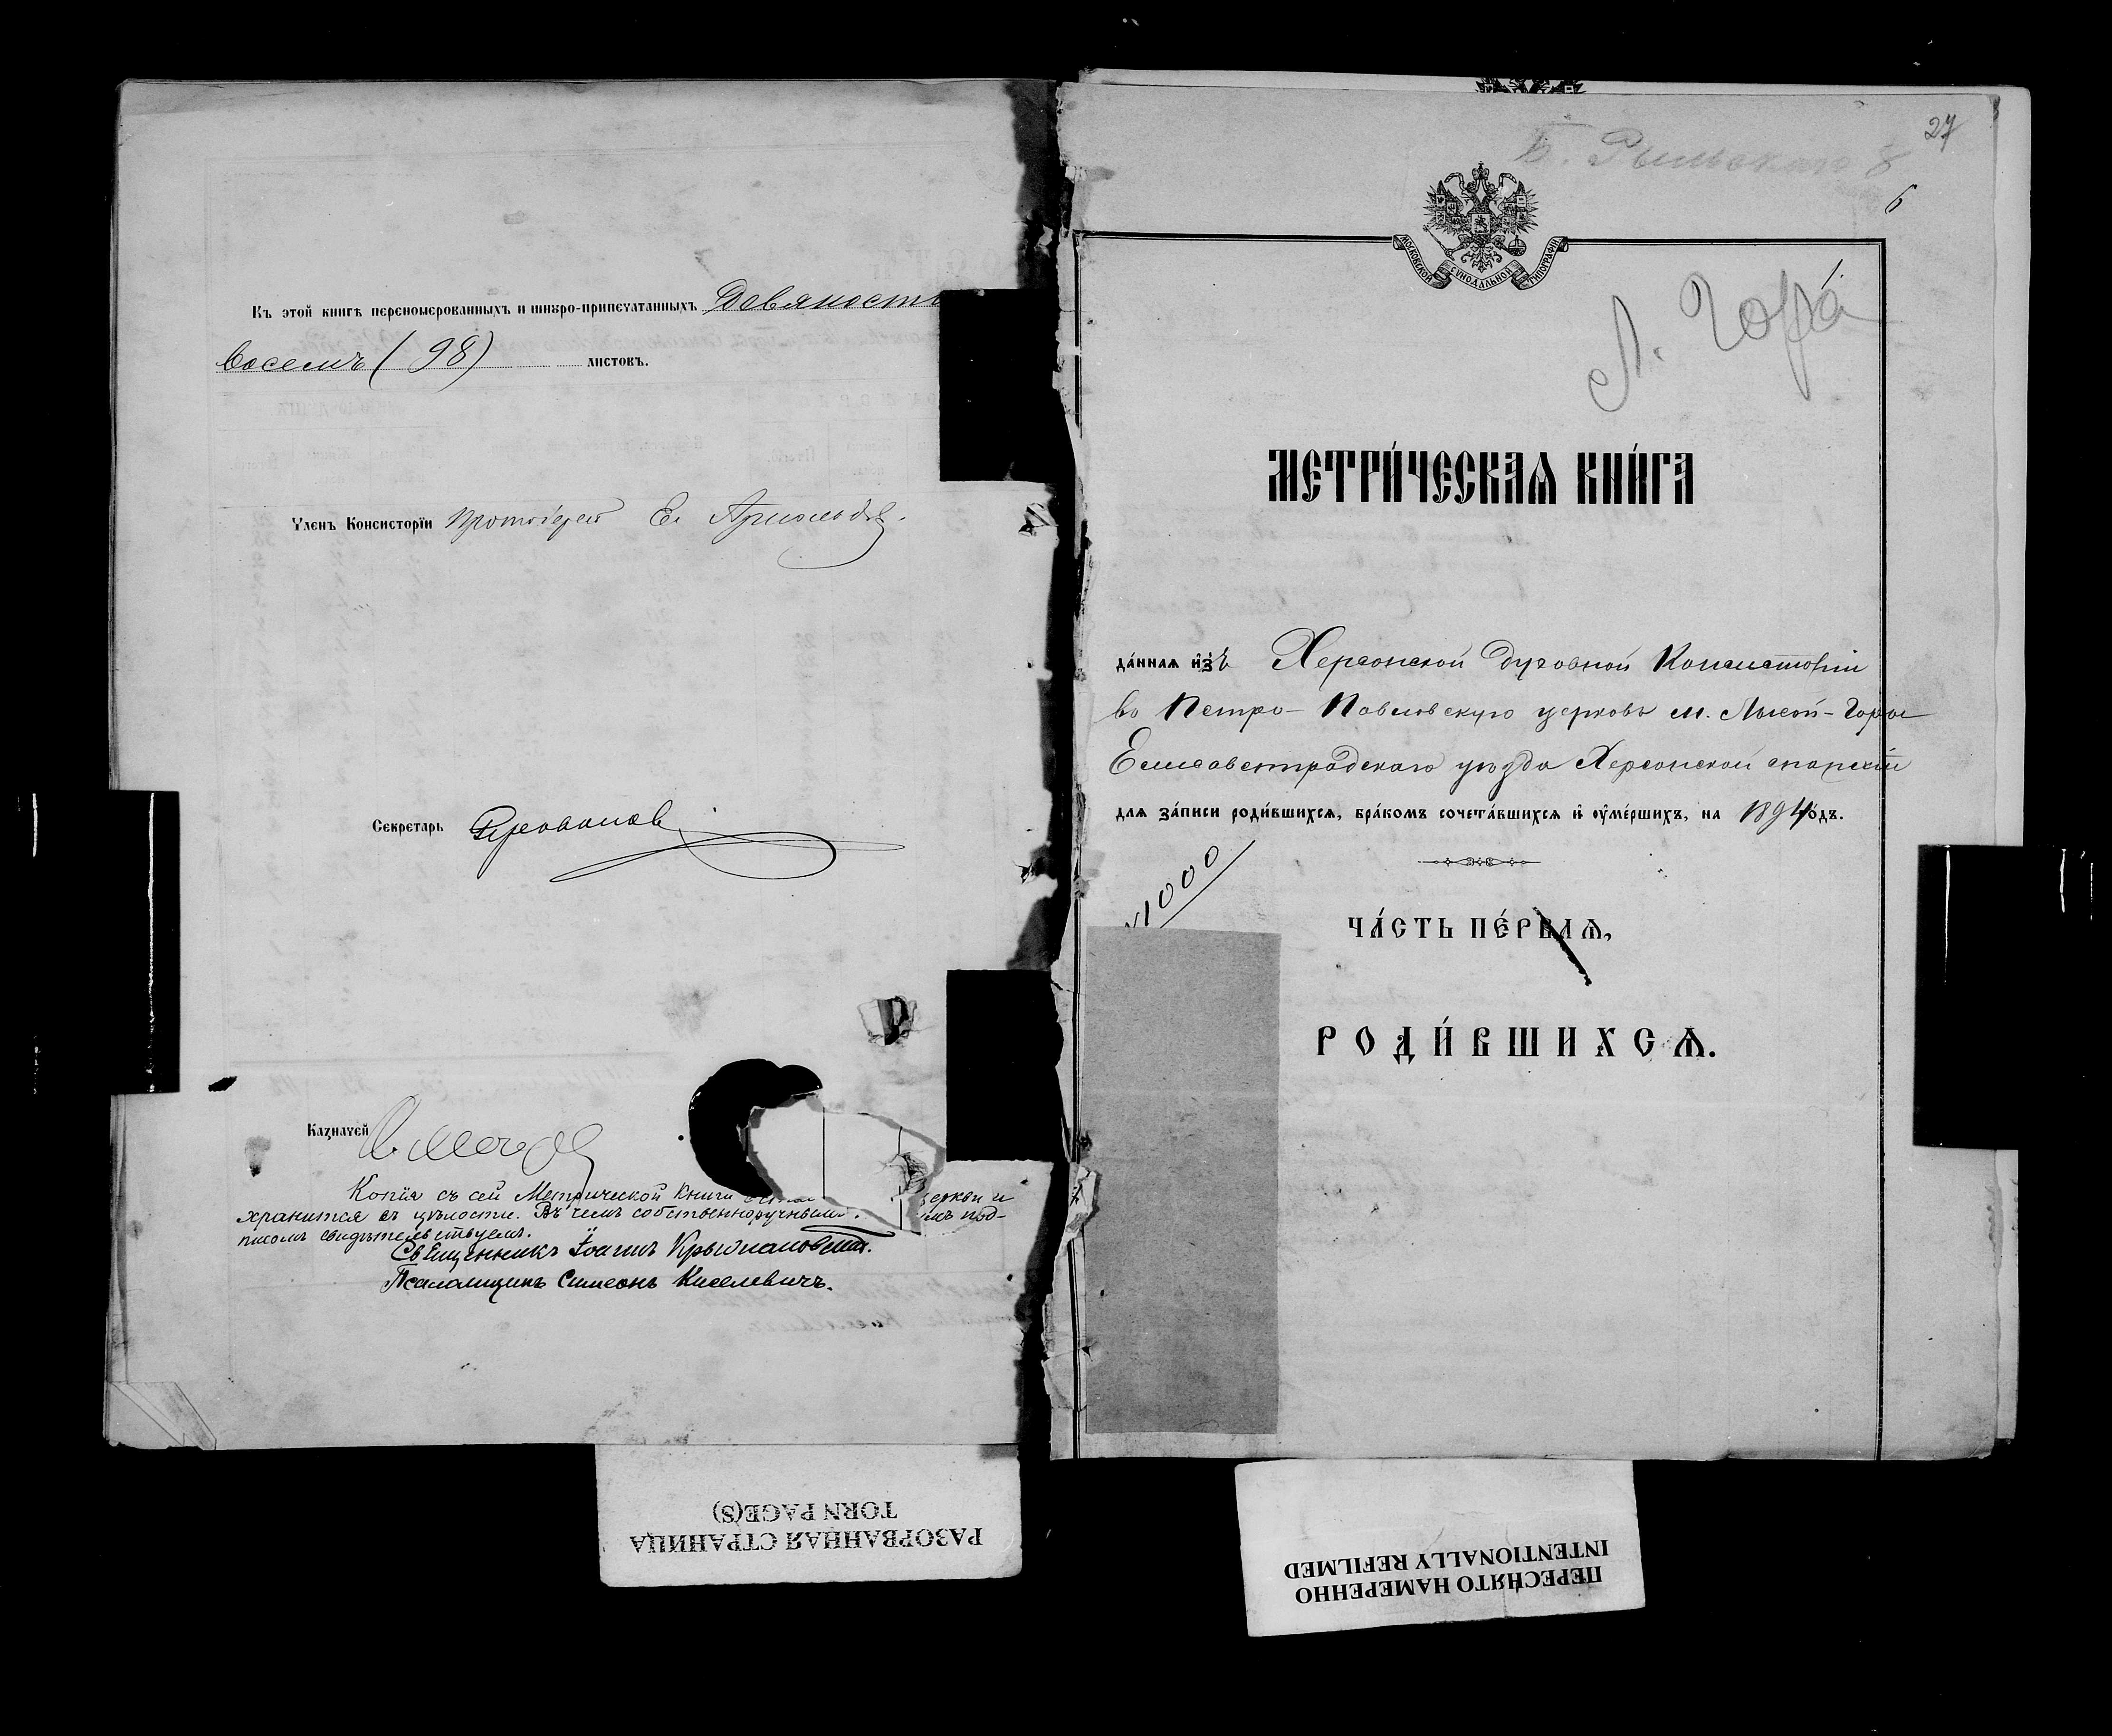 Къ этой книгѣ перенумерованныхъ и шнуро-припечатанныхъ Девяносто
восемь (98) листовъ.
Членъ Консисторіи Протоіерей
Секретарь
Казначей
Копія съ сей Метрической Книги церкви и
хранится въ цѣлости. Въ чемъ собственноручнымъ под-
писомъ свидѣтельствуемъ.
Священникъ Іоаннъ Крыжановскій.
Псаломщикъ Симеонъ Киселевичъ.
РАЗОРВАННАЯ СТРАНИЦА
TORN PAGE(S)
27
6
МОСКОВСКОЙ СѴНОДАЛЬНОЙ ТИПОГРАФІИ
Л. Гора
МЕТРИ́ЧЕСКАѦ КНИ́ГА
да́ннаѧ изъ Херсонской Духовной Консисторіи
во Петро-Павловскую церковь м. Лысой-Горы
Елисаветградскаго уѣзда Херсонской епархіи
для за́писи роди́вшихсѧ, бра́комъ сочета́вшихсѧ и҆ ᲂу҆ме́ршихъ, на 1894 го́дъ.
1000
ЧА́СТЬ ПЕ́РВАѦ,
РОДИ́ВШИХСѦ.
ПЕРЕСНЯТО НАМЕРЕННО
INTENTIONALLY REFILMED